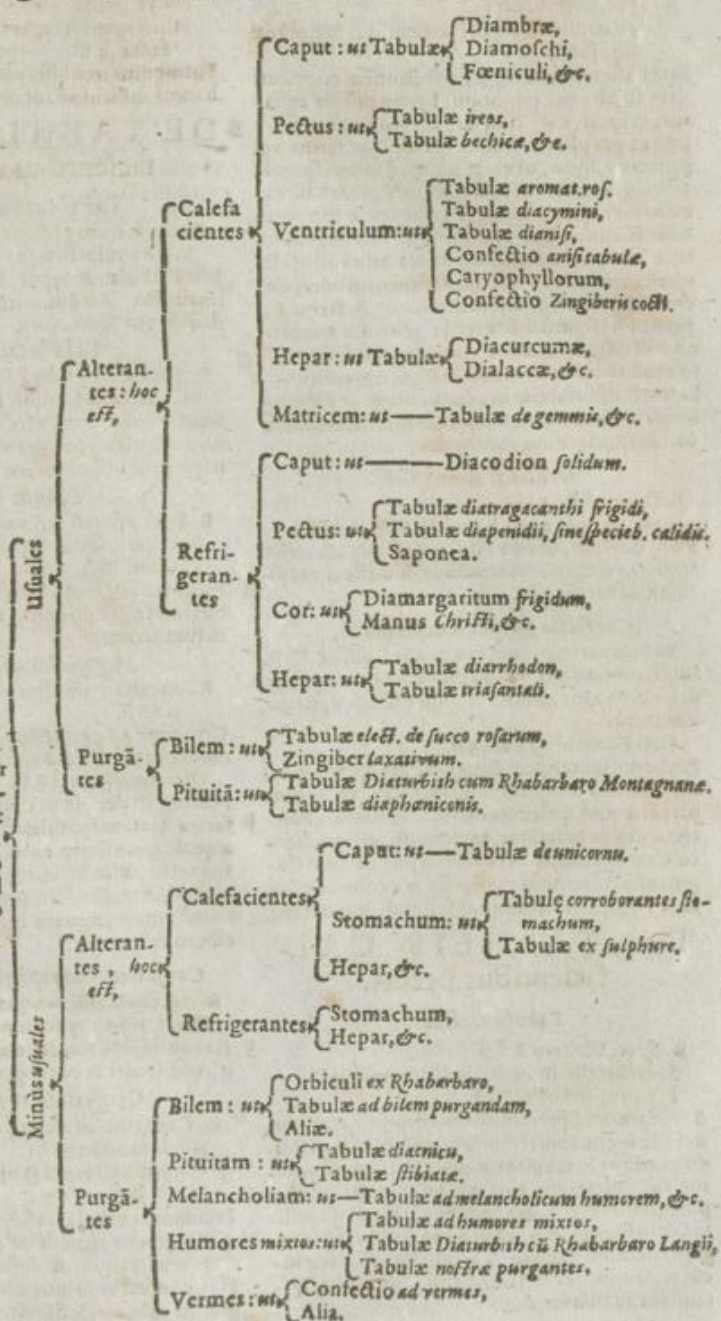 Caput : ut Tabulæ
Diambræ,
Diamoschi,
Fœniculi, &c.
Pectus : ut
Tabulæ ireos,
Tabulæ bechicæ, &c.
Calefa
cientes
Ventriculum: ut
Tabulæ aromat. ros.
Tabulæ diacymini,
Tabulæ dianisi,
Confectio anisi tabulæ,
Caryophyllorum,
Confectio Zingiberis cocti.
Hepar: ut Tabulæ
Diacurcumæ,
Dialaccæ, &c.
Matricem: ut —— Tabulæ de gemmis, &c.
Alteran-
tes : hoc
est,
Refri-
geran-
tes
Caput: ut —— Diacodion solidum.
Pectus: ut
Tabulæ diatragacanthi frigidi,
Tabulæ diapenidii, sine specieb. calidis.
Saponea.
Cor: ut
Diamargaritum frigidum,
Manus Christi, &c.
Hepar: ut
Tabulæ diarrhodon,
Tabulæ triasantali.
Usuales
Purgā-
tes
Bilem : ut
Tabulæ elect. de succo rosarum,
Zingiber laxativum.
Pituitā: ut
Tabulæ Diaturbith cum Rhabarbaro Montagnanæ.
Tabulæ diaphœniconis.
Minùs usuales
Alteran-
tes , hoc
est,
Calefacientes
Caput: ut — Tabulæ de unicornu.
Stomachum: ut
Tabulę corroborantes sto-
machum,
Tabulæ ex sulphure.
Hepar, &c.
Refrigerantes
Stomachum,
Hepar, &c.
Purgā-
tes
Bilem : ut
Orbiculi ex Rhabarbaro,
Tabulæ ad bilem purgandam,
Aliæ.
Pituitam : ut
Tabulæ diacnicu,
Tabulæ stibiatæ.
Melancholiam: ut — Tabulæ ad melancholicum humorem, &c.
Humores mixtos: ut
Tabulæ ad humores mixtos,
Tabulæ Diaturbith cū Rhabarbaro Langii,
Tabulæ nostræ purgantes.
Vermes : ut
Confectio ad vermes,
Alia.